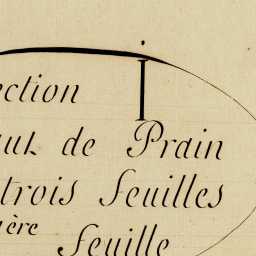 ection I
aut de Prain
trois feuilles
ière feuille